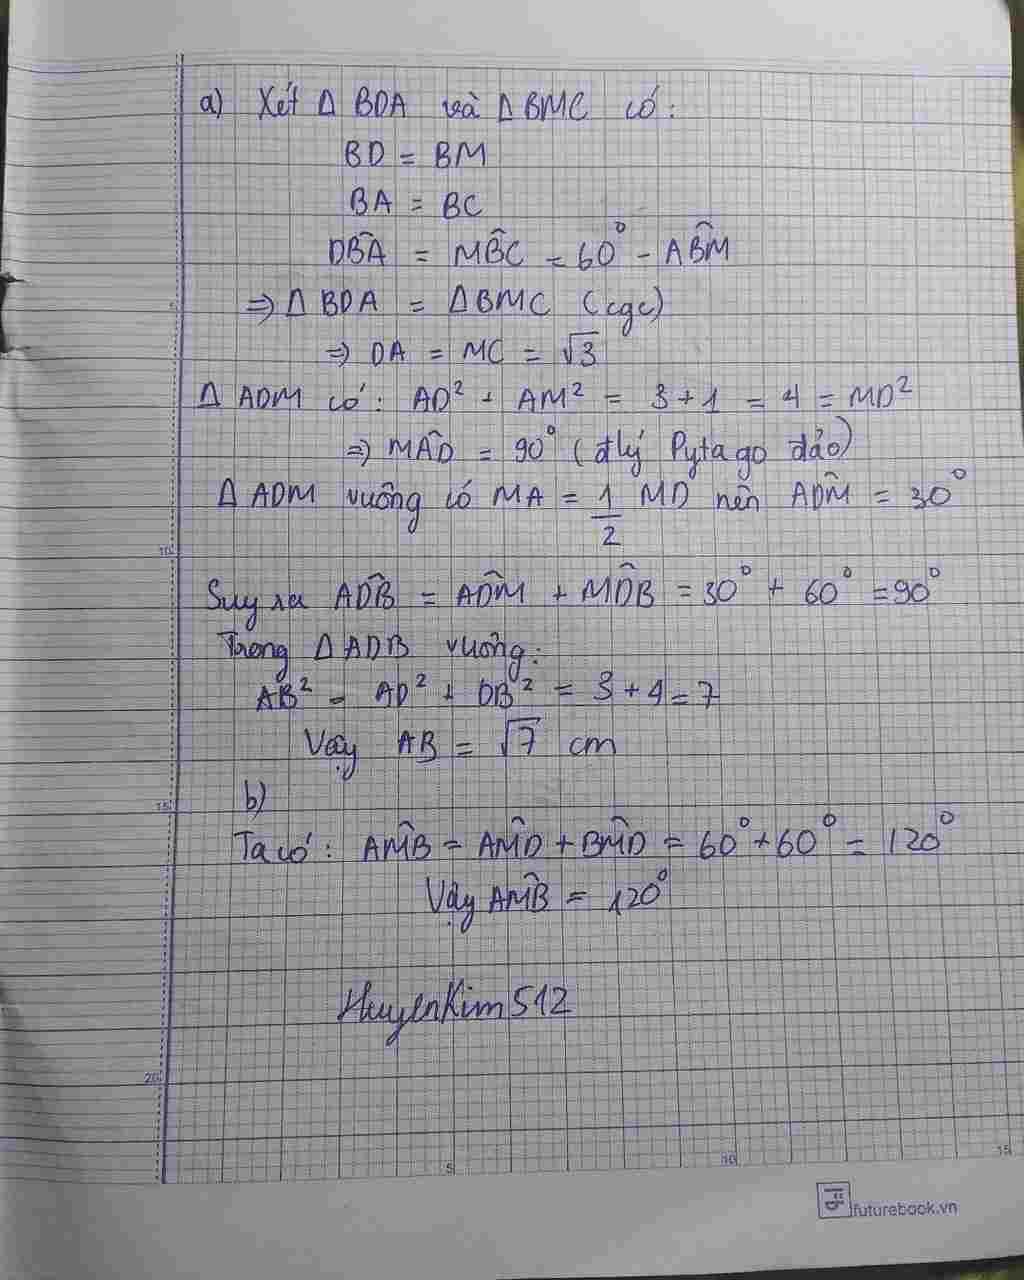 a) Xét Δ BDA và Δ BMC có:
BD = BM
BA = BC
DB̂A = MB̂C = 60° - AB̂M
⇒ Δ BDA = Δ BMC (cgc)
⇒ DA = MC = √3
Δ ADM có: AD² + AM² = 3 + 1 = 4 = MD²
⇒ MÂD = 90° (đlý Pytago đảo)
Δ ADM vuông có MA = 1/2 MD nên AD̂M = 30°
Suy ra AD̂B = AD̂M + MD̂B = 30° + 60° = 90°
Trong Δ ADB vuông:
AB² = AD² + DB² = 3 + 4 = 7
Vậy AB = √7 cm
b)
Ta có: AM̂B = AM̂D + BM̂D = 60° + 60° = 120°
Vậy AM̂B = 120°
HuyenKim512
5
10
15
20
5
10
15
futurebook.vn